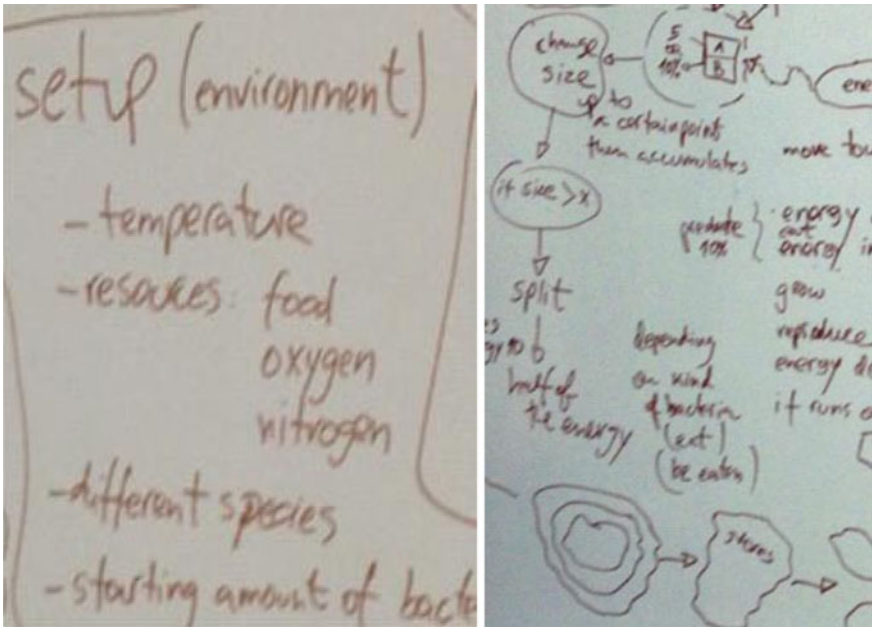 setup (environment)
- temperature
- resouces: food
oxygen
nitrogen
- different species
- starting amount of bacte
change
size
up to
a certain point
then accumulates
5
10%
A
B
ene
move tow
if size > x
10%
energy
eat
energy in
split
grow
reproduce
energy de
it runs o
half of
the energy
depending
on kind
of bacteria
(eat)
(be eaten)